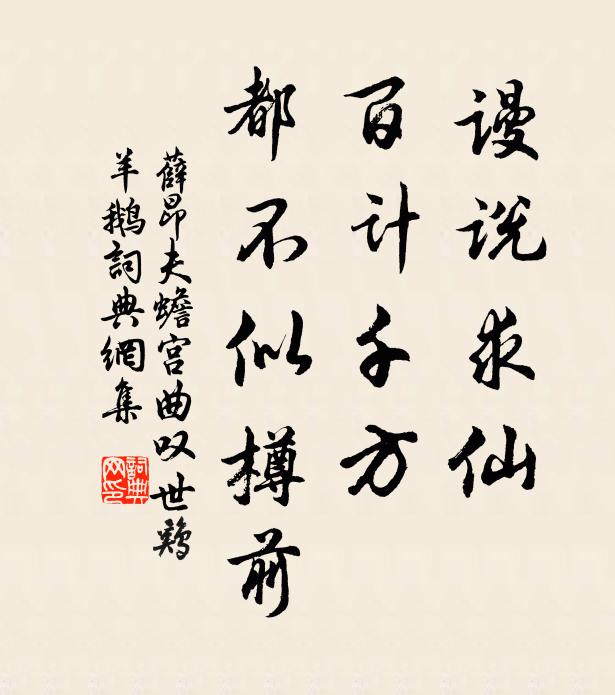 谩说求仙
百计千方
都不似樽前
薛昂夫蟾宫曲叹世鸡
羊鹅詞典網集
詞典网印